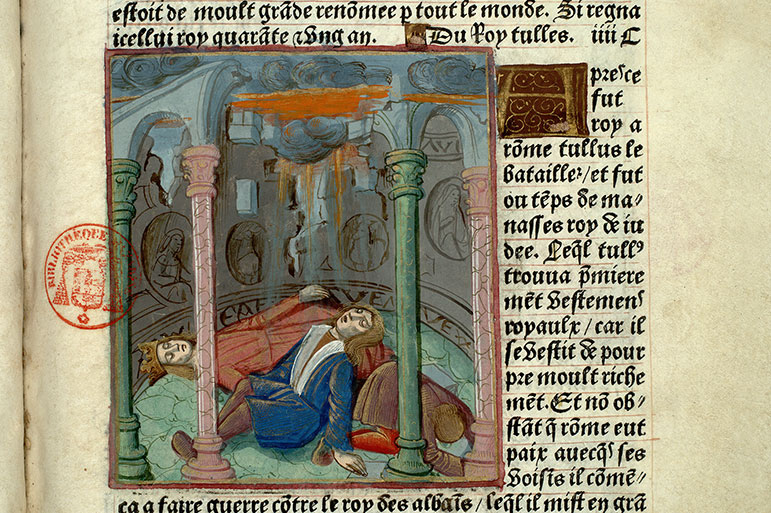 estoit de moult grãde renomee p tout le monde. Si regna
icellui roy quarãte ⁊ ung an. Du Roy tulles. iiii C
Apresce
fut
roy a
rõme tullus le
batailler/et fut
ou tẽps de ma⸗
nasses roy de iu
dee. Leql tullꝰ
trouua pmiere
mẽt vestemens
royaulx/ car il
se vestit de pour
pre moult riche
mẽt. Et nõ ob⸗
stãt q̃ rõme eut
paix auecqs ses
voisis il cõmẽ⸗
ca a faire guerre cõtre le roy des albãis/ leql il mist en grã
BIBLIOTHEQUE